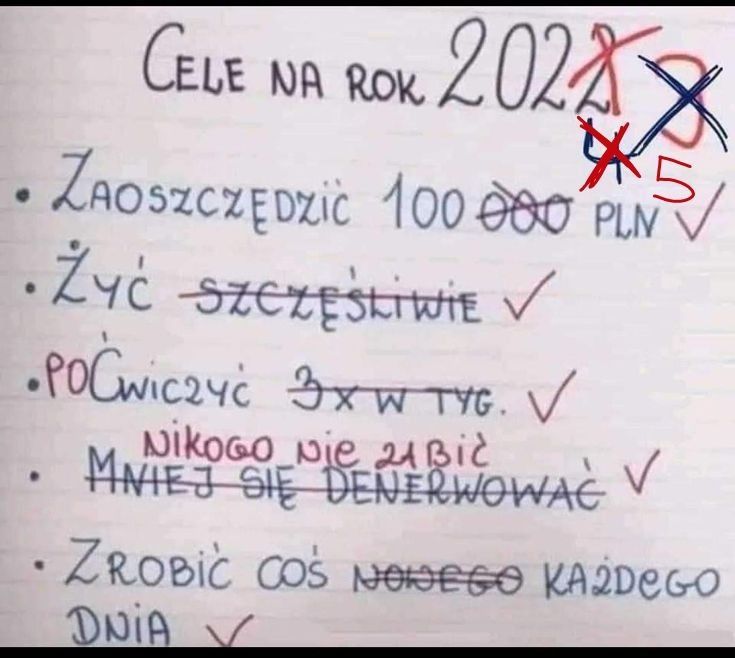 CELE NA ROK 2022 3
4 5
• ZAOSZCZĘDZIĆ 100 000 PLN ✓
• ŻYĆ SZCZĘŚLIWIE ✓
• POĆWICZYĆ 3 X W TYG. ✓
NIKOGO NIE ZABIĆ
• MNIEJ SIĘ DENERWOWAĆ ✓
• ZROBIĆ COŚ NOWEGO KAŻDEGO
DNIA ✓